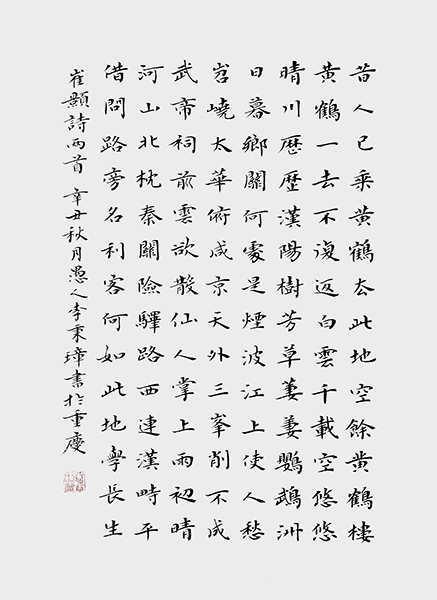 昔人已乘黄鶴去此地空餘黄鶴樓
黄鶴一去不復返白雲千載空悠悠
晴川歷歷漢陽樹芳草萋萋鸚鵡洲
日暮鄉關何處是煙波江上使人愁
岧嶢太華俯咸京天外三峯削不成
武帝祠前雲欲散仙人掌上雨初晴
河山北枕秦關險驛路西連漢畤平
借問路旁名利客何如此地學長生
崔顥詩兩首 辛丑秋月愚人李秉璋書於重慶